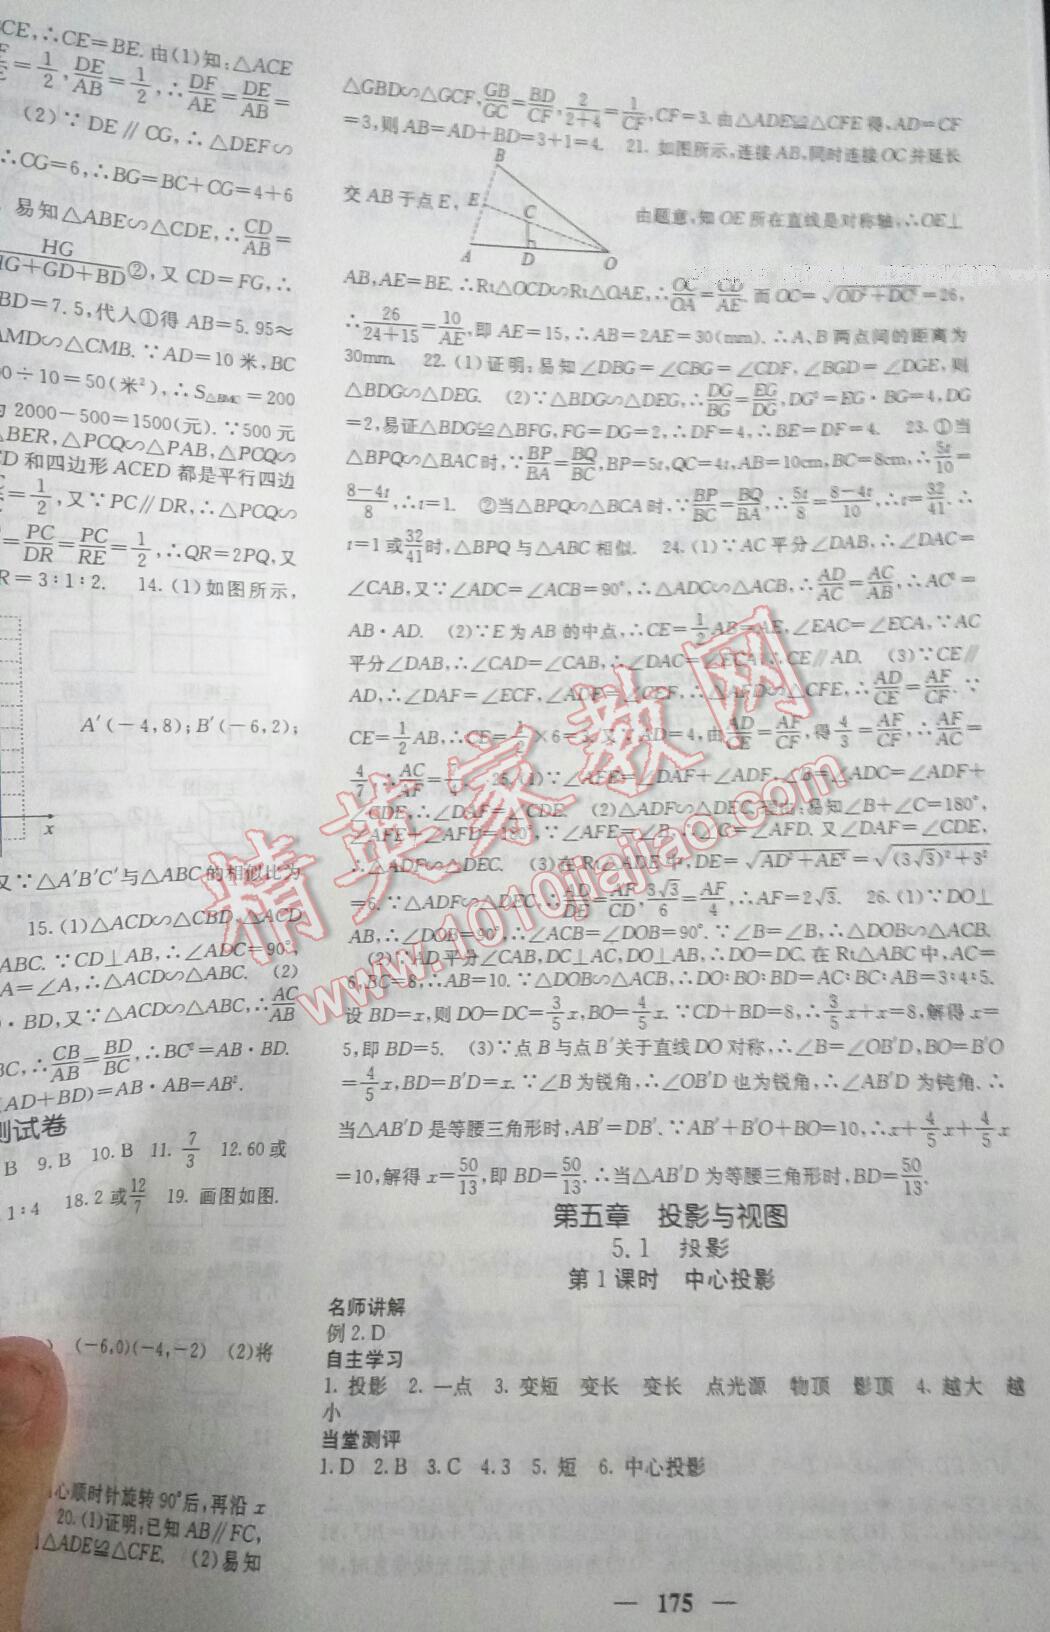 CE,∴CE=BE.由(1)知:△ACE
=1/2,DE/AB=1/2,∴DF/AE=DE/AB=
(2)∵DE∥CG,∴△DEF∽
∴CG=6,∴BG=BC+CG=4+6
易知△ABE∽△CDE,∴CD/AB=
HG/(HG+GD+BD)②,又CD=FG,∴
BD=7.5,代入①得AB=5.95≈
AMD∽△CMB.∵AD=10米,BC
0÷10=50(米²),∴S△BMC=200
为2000-500=1500(元).∵500元
BER,△PCQ∽△PAB,△PCQ∽
CD和四边形ACED都是平行四边
=1/2,又∵PC∥DR,∴△PCQ∽
=PC/DR=PC/RE=1/2,∴QR=2PQ,又
R=3∶1∶2. 14.(1)如图所示,
A′(-4,8);B′(-6,2);
x
又∵△A′B′C′与△ABC的相似比为
15.(1)△ACD∽△CBD,△ACD
ABC.∵CD⊥AB,∴∠ADC=90°,
A=∠A,∴△ACD∽△ABC. (2)
·BD,又∵△ACD∽△ABC,∴AC/AB
BC,∴CB/AB=BD/BC,∴BC²=AB·BD.
(AD+BD)=AB·AB=AB².
测试卷
B 9.B 10.B 11.7/3 12.60或
1∶4 18.2或12/7 19.画图如图.
(-6,0)(-4,-2) (2)将
心顺时针旋转90°后,再沿x
20.(1)证明:已知AB∥FC,
△ADE≌△CFE. (2)易知
△GBD∽△GCF,GB/GC=BD/CF,2/(2+4)=1/CF,CF=3.由△ADE≌△CFE得,AD=CF
=3,则AB=AD+BD=3+1=4. 21.如图所示,连接AB,同时连接OC并延长
交AB于点E,
B
E
C
A
D
O
由题意,知OE所在直线是对称轴,∴OE⊥
AB,AE=BE.∴Rt△OCD∽Rt△OAE,∴OC/OA=CD/AE.而OC=√(OD²+DC²)=26,
∴26/(24+15)=10/AE,即AE=15,∴AB=2AE=30(mm).∴A、B两点间的距离为
30mm. 22.(1)证明:易知∠DBG=∠CBG=∠CDF,∠BGD=∠DGE,则
△BDG∽△DEG. (2)∵△BDG∽△DEG,∴DG/BG=EG/DG,DG²=EG·BG=4,DG
=2,易证△BDG≌△BFG,FG=DG=2,∴DF=4,∴BE=DF=4. 23.①当
△BPQ∽△BAC时,∵BP/BA=BQ/BC,BP=5t,QC=4t,AB=10cm,BC=8cm,∴5t/10=
(8-4t)/8,∴t=1. ②当△BPQ∽△BCA时,∵BP/BC=BQ/BA,∴5t/8=(8-4t)/10,∴t=32/41.∴
t=1或32/41时,△BPQ与△ABC相似. 24.(1)∵AC平分∠DAB,∴∠DAC=
∠CAB,又∵∠ADC=∠ACB=90°,∴△ADC∽△ACB,∴AD/AC=AC/AB,∴AC²=
AB·AD. (2)∵E为AB的中点,∴CE=1/2AB=AE,∠EAC=∠ECA,∵AC
平分∠DAB,∴∠CAD=∠CAB,∴∠DAC=∠ECA,∴CE∥AD. (3)∵CE∥
AD,∴∠DAF=∠ECF,∠ADF=∠CEF,∴△AFD∽△CFE,∴AD/CE=AF/CF.∵
CE=1/2AB,∴CE=1/2×6=3.又∵AD=4,由AD/CE=AF/CF,得4/3=AF/CF,∴AF/AC=
4/7.∴AC/AF=7/4. 25.(1)∵∠AFE=∠DAF+∠ADF,∠B=∠ADC=∠ADF+
∠CDE,∴∠DAF=∠CDE. (2)△ADF∽△DEC.理由:易知∠B+∠C=180°,
∠AFE+∠AFD=180°,∵∠AFE=∠B,∴∠C=∠AFD.又∠DAF=∠CDE,
∴△ADF∽△DEC. (3)在Rt∠ADE中,DE=√(AD²+AE²)=√((3√3)²+3²)
=6.∵△ADF∽△DEC,∴AD/DE=AF/CD,3√3/6=AF/4,∴AF=2√3. 26.(1)∵DO⊥
AB,∴∠DOB=90°,∴∠ACB=∠DOB=90°.∵∠B=∠B,∴△DOB∽△ACB.
(2)∵AD平分∠CAB,DC⊥AC,DO⊥AB,∴DO=DC.在Rt△ABC中,AC=
6,BC=8,∴AB=10.∵△DOB∽△ACB,∴DO∶BO∶BD=AC∶BC∶AB=3∶4∶5.
设BD=x,则DO=DC=3/5x,BO=4/5x.∵CD+BD=8,∴3/5x+x=8,解得x=
5,即BD=5. (3)∵点B与点B′关于直线DO对称,∴∠B=∠OB′D,BO=B′O
=4/5x,BD=B′D=x.∵∠B为锐角,∴∠OB′D也为锐角,∴∠AB′D为钝角.∴
当△AB′D是等腰三角形时,AB′=DB′.∵AB′+B′O+BO=10,∴x+4/5x+4/5x
=10,解得x=50/13,即BD=50/13.∴当△AB′D为等腰三角形时,BD=50/13.
第五章 投影与视图
5.1 投影
第1课时 中心投影
名师讲解
例2.D
自主学习
1.投影 2.一点 3.变短 变长 变长 点光源 物顶 影顶 4.越大 越
小
当堂测评
1.D 2.B 3.C 4.3 5.短 6.中心投影
— 175 —
精英家教网
www.1010jiajiao.com